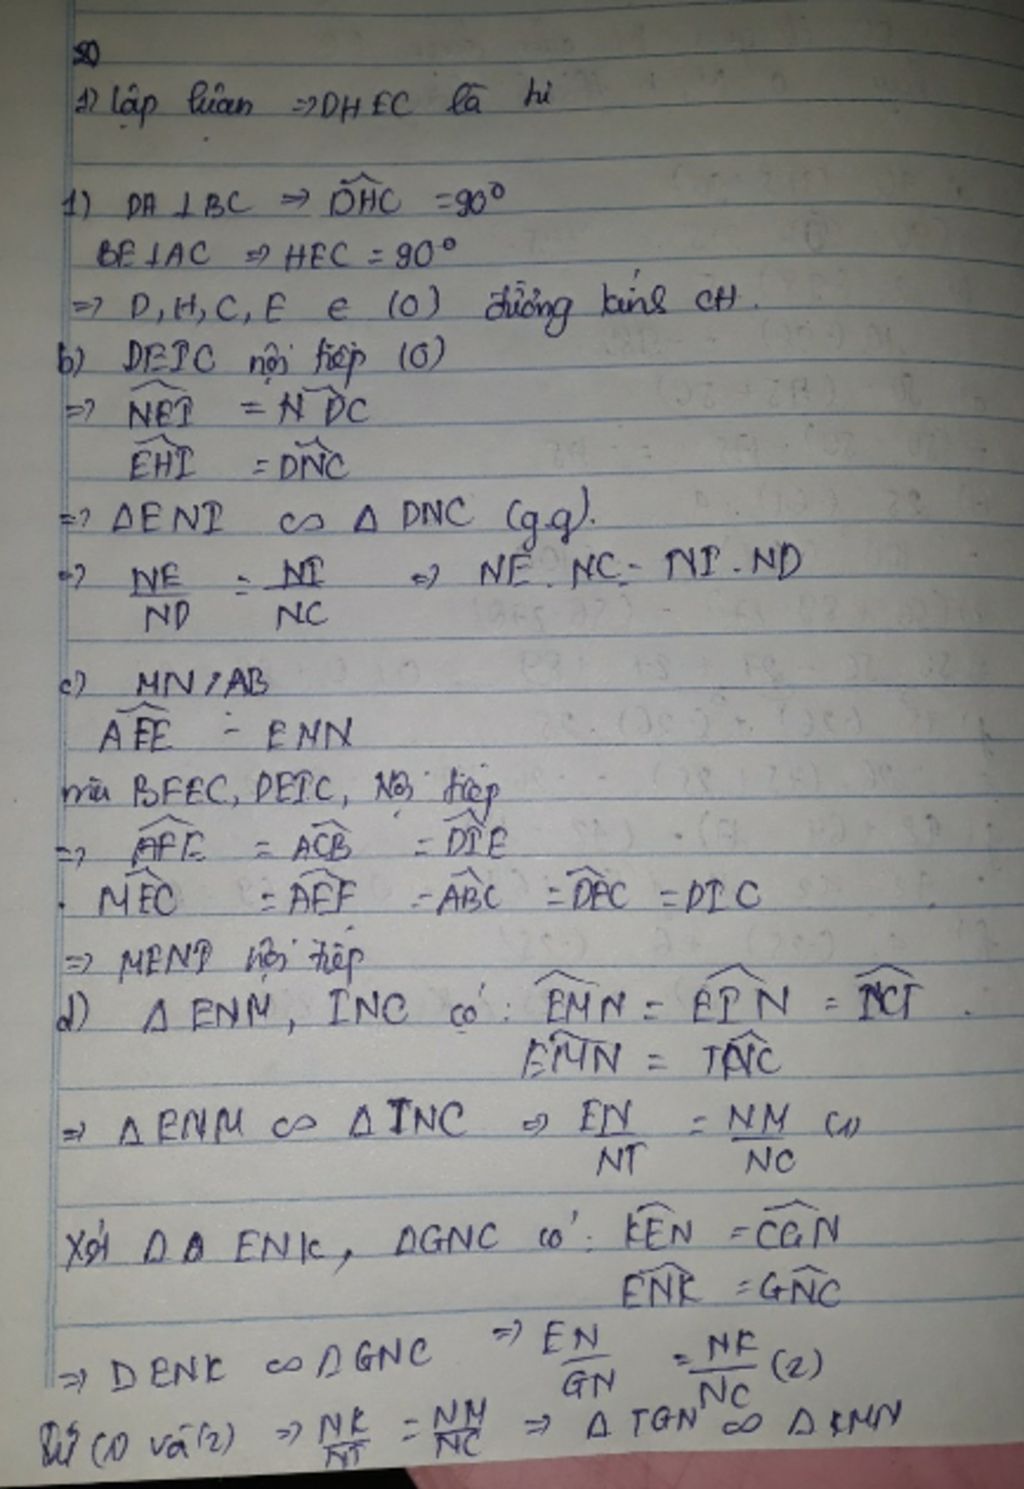 1) lập luận => DHEC là hì
1) DA ⊥ BC => DHC = 90°
BE ⊥ AC => HEC = 90°
=> D, H, C, E ∈ (O) đường kính CH.
b) DEIC nội tiếp (O)
=> NEI = NDC
EHI = DNC
=> Δ ENI ∽ Δ DNC (g.g).
=> NE/ND = NI/NC => NE . NC = NI . ND
c) MN // AB
AFE = ENN
mà BFEC, DEIC, Nội tiếp
=> AFE = ACB = DIE
MEC = AEF = ABC = DEC = DIC
=> MENI nội tiếp
d) Δ ENM, INC có: EMN = EIN = NCI.
EMN = INC
=> Δ ENM ∽ Δ INC => EN/NI = NM/NC (1)
Xét Δ Δ ENK, ΔGNC có: KEN = CGN
ENK = GNC
=> Δ ENK ∽ Δ GNC => EN/GN = NK/NC (2)
Từ (1) và (2) => NK/NI = NM/NC => Δ IGN ∽ Δ KMN